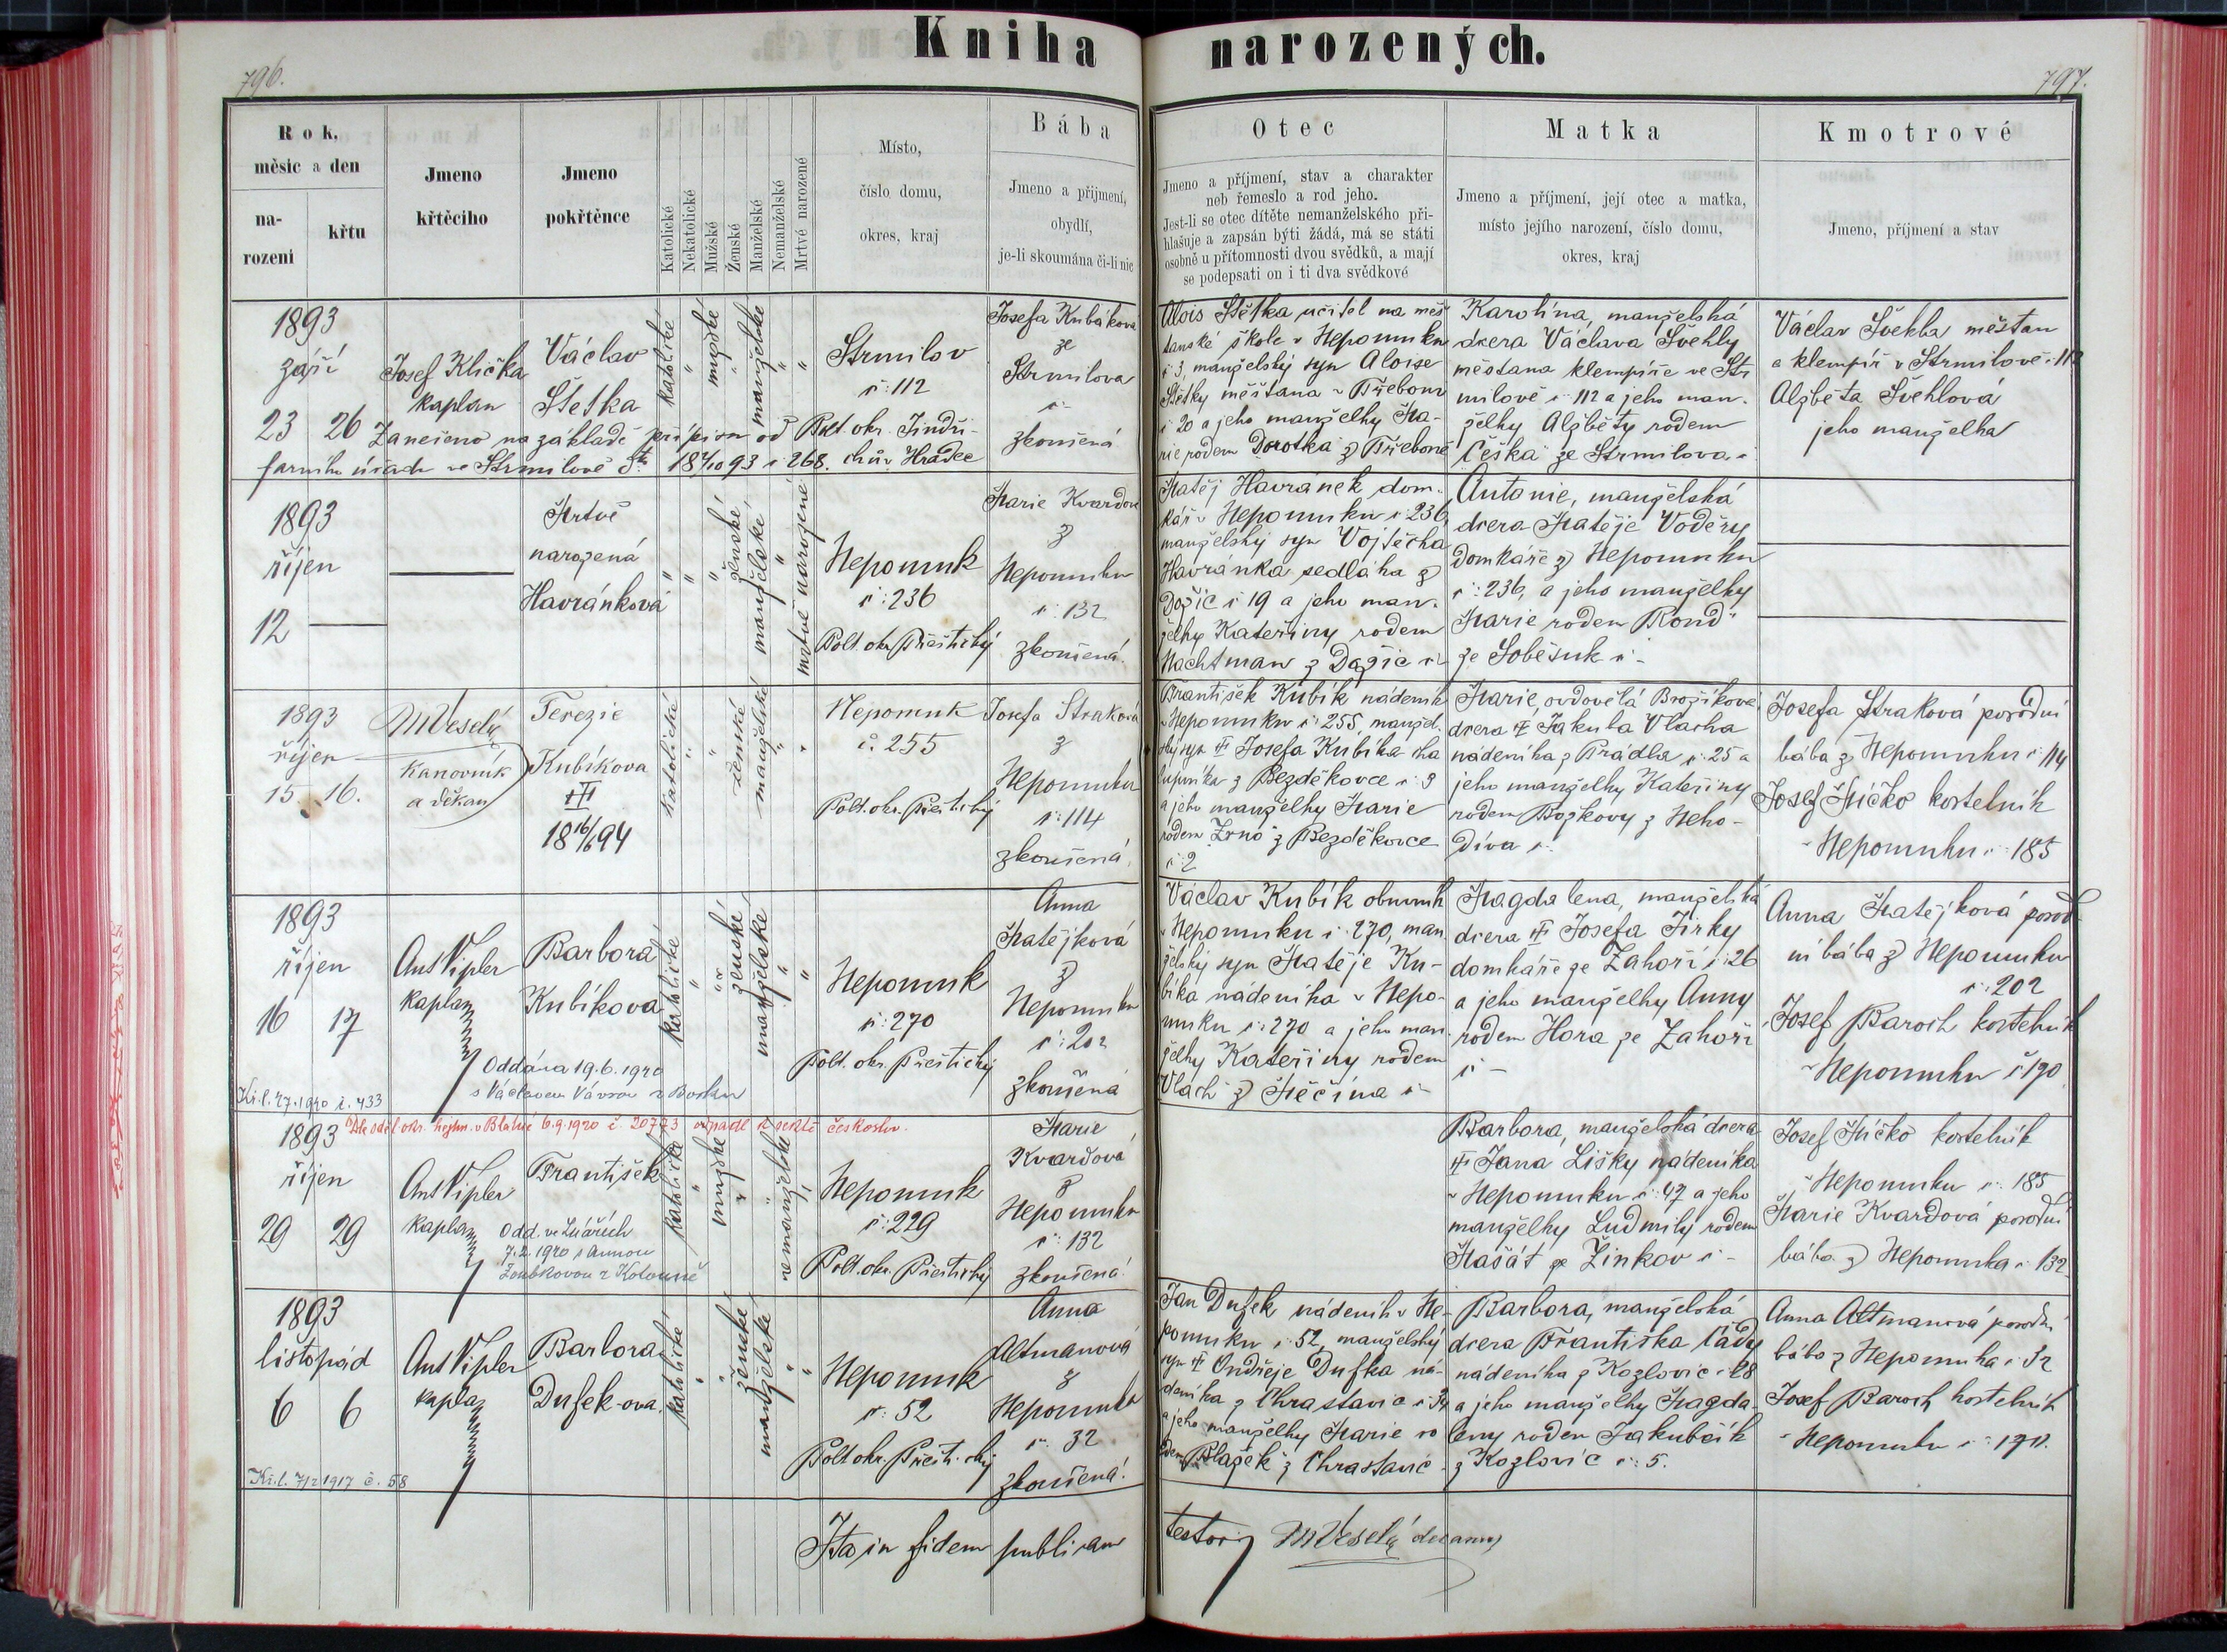 Kniha narozených.
796.
797.
Rok, měsíc a den
narození
křtu
Jmeno křtěcího
Jmeno pokřtěnce
Katolické
Nekatolické
Mužské
Ženské
Manželské
Nemanželské
Mrtvé narozené
Místo,
číslo domu,
okres, kraj
Bába
Jmeno a přijmení,
obydlí,
je-li skoumána či-li nic
Otec
Jmeno a příjmení, stav a charakter
neb řemeslo a rod jeho.
Jest-li se otec dítěte nemanželského při-
hlašuje a zapsán býti žádá, má se státi
osobně u přítomnosti dvou svědků, a mají
se podepsati on i ti dva svědkové
Matka
Jmeno a příjmení, její otec a matka,
místo jejího narození, číslo domu,
okres, kraj
Kmotrové
Jmeno, příjmení a stav
1893
září
23 26
Josef Klička
kaplan
Václav
Štětka
katolické
mužské
manželské
Strmilov
č: 112
Polit. okr. Jindři-
chův Hradec
Zanešeno na základě přípisu od
farního úřadu ve Strmilově 18 7/10 93 č 268.
Josefa Kubáková
ze
Strmilova
č-
zkoušená
Alois Štětka učitel na měš
tanské škole v Nepomuku
č 3, manželský syn Aloise
Štětky měštana v Třeboni
č 20 a jeho manželky Ma-
rie rodem Dorotka z Třeboně
Karolína, manželská
dcera Václava Švehly
měštana klempíře ve Str
milově č 112 a jeho man-
želky Alžběty rodem
Češka ze Strmilova.
Václav Švehla měštan
a klempíř v Strmilově č 112
Alžběta Švehlová
jeho manželka
1893
říjen
12
Mrtvě
narozená
Havránková
ženské
manželské
mrtvě narozené
Nepomuk
č: 236
Polit. okr. Přeštický
Marie Kvardová
z
Nepomuku
č: 132
zkoušená.
Matěj Havránek dom-
kář v Nepomuku č 236,
manželský syn Vojtěcha
Havránka sedláka z
Dožic č 19 a jeho man-
želky Kateřiny rodem
Nachtman z Dožic č-
Antonie, manželská
dcera Matěje Voděry
domkáře z Nepomuku
č: 236, a jeho manželky
Marie rodem Rond
ze Soběsuk č-
1893
říjen
15. 16.
M Veselý
kanovník
a děkan
Terezie
Kubíkova
18 16/6 94
katolické
ženské
manželské
Nepomuk
č. 255
Polit. okr. Přeštický
Josefa Straková
z
Nepomuku
č: 114
zkoušená.
František Kubík nádeník
v Nepomuku č 255 manžel-
ský syn Josefa Kubíka cha
lupníka z Bezděkovce č 9
a jeho manželky Marie
rodem Zrno z Bezděkovce
č 2
Marie, ovdovělá Brožíková
dcera Jakuba Vlacha
nádeníka z Prádla č 25 a
jeho manželky Kateřiny
rodem Božkovy z Neho-
díva č:
Josefa Straková porodní
bába z Nepomuku č 114
Josef Míčko kostelník
v Nepomuku č: 185
1893
říjen
16 17
Ant Vipler
kaplan
Barbora
Kubíkova
Oddána 19.6.1920
s Václavem Vávrou
Kř. l. 27.1920 č. 433
katolické
ženské
manželské
Nepomuk
č: 270
Polit. okr. Přeštický
Anna
Matějková
z
Nepomuku
č: 202
zkoušená
Václav Kubík obuvník
v Nepomuku č 270, man
želský syn Matěje Ku-
bíka nádeníka v Nepo-
muku č: 270 a jeho man
želky Kateřiny rodem
Vlach z Měčína č-
Magdalena, manželská
dcera Josefa Jirky
domkáře ze Zahoří č: 26
a jeho manželky Anny
rodem Hora ze Zahoří
č-
Anna Matějková porod-
ní bába z Nepomuku
č: 202
Josef Baroch kostelník
v Nepomuku č 190
1893
Dle sděl. okr. hejtm. v Blatné 6.9.1920 č. 20773 odpadl k sektě českoslov.
říjen
29 29
Ant Vipler
kaplan
František
Odd. ve Lnářích
7.2.1920 s Annou
Zoubkovou z Kotouně
katolické
mužské
nemanželské
Nepomuk
č: 229
Polit. okr. Přeštický
Marie
Kvardová
z
Nepomuku
č: 132
zkoušená.
Barbora, manželská dcera
Jana Lišky nádeníka
v Nepomuku č: 47 a jeho
manželky Ludmily rodem
Mašát ze Žinkov č-
Josef Míčko kostelník
v Nepomuku č: 185
Marie Kvardová porodní
bába z Nepomuka č: 132
1893
listopad
6 6
Ant Vipler
kaplan
Barbora
Dufek-ova.
Kř. l. 7/2 1917 č. 58
katolické
ženské
manželské
Nepomuk
č: 52
Polit okr. Přeštický
Anna
Altmanová
z
Nepomuku
č: 32
zkoušená.
Jan Dufek nádeník v Ne-
pomuku č: 52, manželský
syn Ondřeje Dufka ná-
deníka z Chrastavic č 34
a jeho manželky Marie ro
dem Blažek z Chrastavic
Barbora, manželská
dcera Františka Čády
nádeníka z Kozlovic č 28
a jeho manželky Magda-
leny rodem Jakubčík
z Kozlovic č: 5.
Anna Altmanová porodní
bába z Nepomuka č 32
Josef Baroch kostelník
v Nepomuku č: 190.
Ita in fidem publicam testor M Veselý decanus